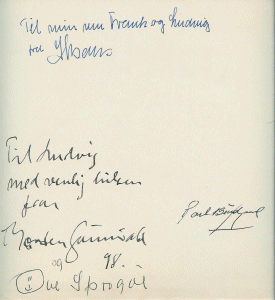 Til min ven Frank og Ludvig
fra
Til Ludvig
med venlig hilsen
fra
Morten Grunwald
og 98.
Ove Sprogøe
Poul Bundgaard